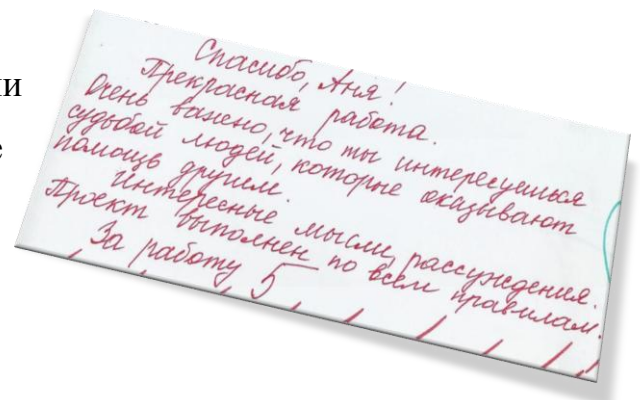 ии
е
Спасибо, Аня!
Прекрасная работа.
Очень важно, что ты интересуешься
судьбой людей, которые оказывают
помощь другим.
Интересные мысли, рассуждения.
Проект выполнен по всем правилам.
За работу 5